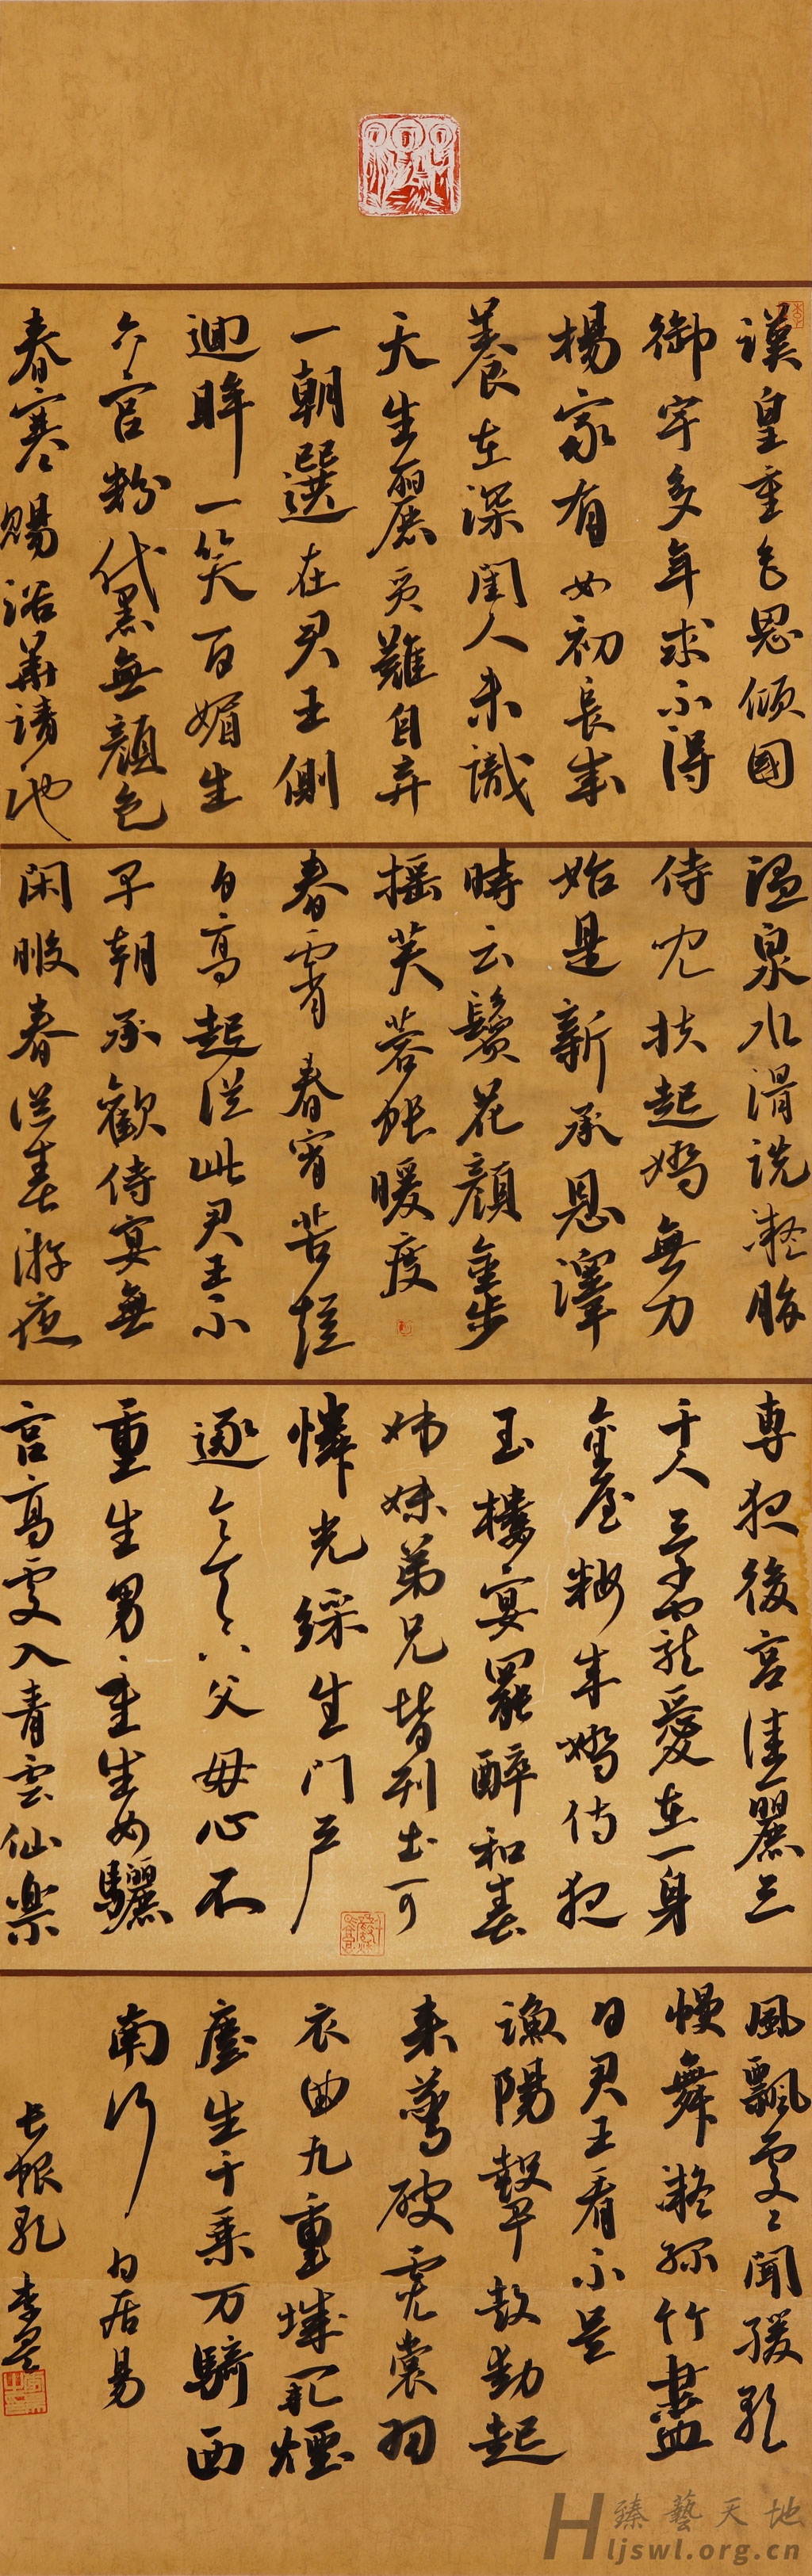 漢皇重色思傾國
御宇多年求不得
楊家有女初長成
養在深閨人未識
天生麗質難自弃
一朝選在君王側
迴眸一笑百媚生
六宮粉黛無顏色
春寒賜浴華清池
溫泉水滑洗凝脂
侍兒扶起嬌無力
始是新承恩澤
時云鬢花顏金步
摇芙蓉帐暖度
春宵春宵苦短
日高起從此君王不
早朝承歡侍宴無
閑暇春從春游夜
專夜後宮佳麗三
千人三千寵愛在一身
金屋粧成嬌侍夜
玉樓宴罷醉和春
姊妹弟兄皆列土可
憐光綵生門户
遂令天下父母心不
重生男重生女驪
宮高處入青雲仙樂
風飄處〻聞緩歌
慢舞凝絲竹盡
日君王看不足
漁陽鼙鼓動起
来驚破霓裳羽
衣曲九重城闕煙
塵生千乘万騎西
南行 白居易
長恨歌 李
臻藝天地
Hljswl.org.cn